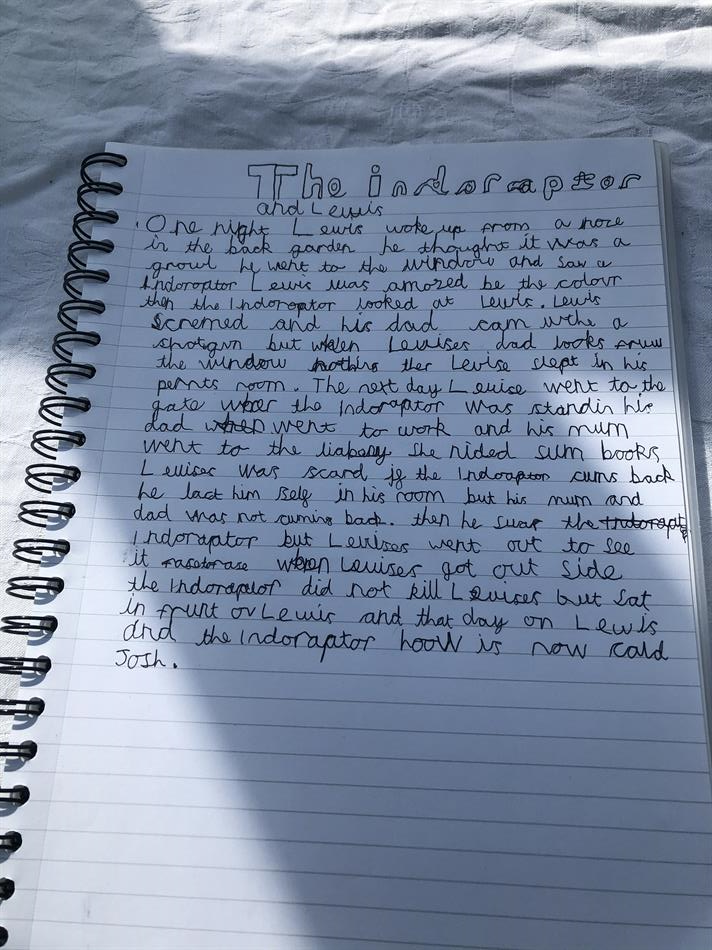 The indoraptor
and Lewis
One night Lewis woke up from a noze
in the back garden he thought it was a
growl he went to the window and saw a
Indoraptor Lewis was amozed be the colour
then the Indoraptor looked at Lewis. Lewis
Scremed and his dad cam withe a
shotgun but when Leuises dad looks fruw
the window nothing ther Levise slept in his
pernts room. The next day Leuise went to the
gate wher the Indoraptor was standin his
dad when went to work and his mum
went to the liabery she nided sum books
Leuises was scard if the Indoraptor cums back
he lact him self in his room but his mum and
dad was not cuming back. then he swar the Indorapt
Indoraptor but Leuises went out to see
it fasetorase when Leuises got out side
the Indoraptor did not kill Leuises but Sat
in frunt ov Lewis and that day on Lewis
and the Indoraptor hooW is now cald
Josh.